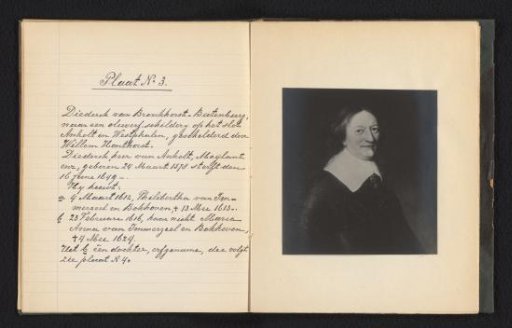 Plaat No 3.
Diederick van Bronkhorst-Batenburg,
naar een olieverf schilderij op het slot
Anholt in Westphalen, geschilderd door
Willem Honthorst.
Diederick heer van Anholt, Moyland
enz, geboren 24 Maart 1578 sterft den
16 Juni 1649.
Hij huwt:
a 4 Maart 1612,
en Bokhoven, † 13 Mei 1613.
b 23 Februari 1616, haar nicht Maria
Anna van Immerzeel en Bokhoven,
† 4 Mei 1624.
Uit b één dochter, erfgename, die volgt
zie plaat N 4.